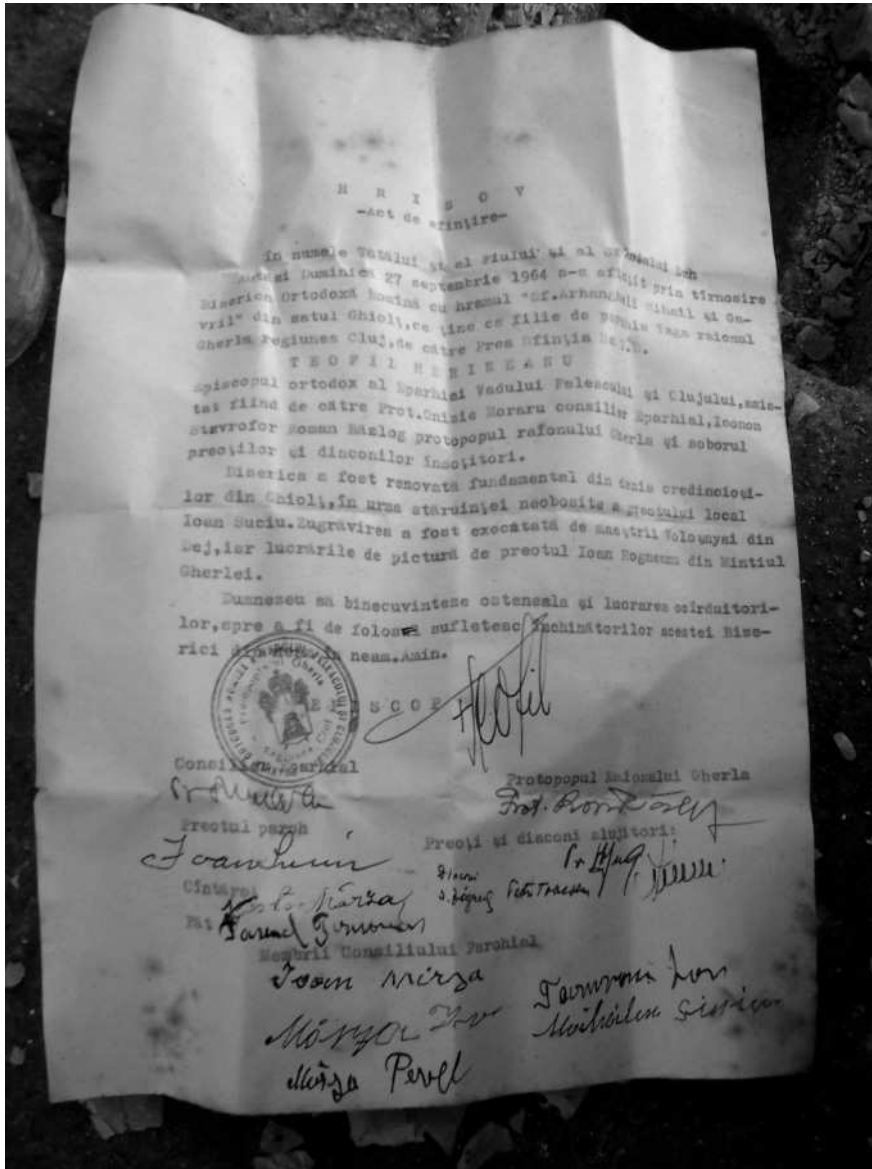 H R I S O V
-Act de sfinţire-
În numele Tatălui şi al Fiului şi al Sfîntului Duh
Astăzi Duminică 27 septembrie 1964 s-a sfinţit prin tîrnosire
Biserica Ortodoxă Romînă cu hramul "Sf.Arhangheli Mihail şi Ga-
vril" din satul Ghiolţ,ce ţine ca filie de parohia Ţaga raionul
Gherla regiunea Cluj,de către Prea Sfinţia Sa,D.D.
T E O F I L H E R I N E A N U
Episcopul ortodox al Eparhiei Vadului Feleacului şi Clujului,asis-
tat fiind de către Prot.Onisie Moraru consilier Eparhial,Iconom
Stavrofor Roman Băzlog protopopul raionului Gherla şi soborul
preoţilor şi diaconilor însoţitori.
Biserica a fost renovată fundamental din dania credincioşi-
lor din Ghiolţ,în urma stăruinţei neobosite a preotului local
Ioan Suciu.Zugrăvirea a fost executată de maeştrii din
Dej,iar lucrările de pictură de preotul Ioan din Mintiul
Gherlei.
Dumnezeu să binecuvinteze osteneala şi lucrarea osîrduitori-
lor,spre a fi de folos sufletesc închinătorilor acestei Bise-
rici din neam în neam.Amin.
EPISCOP
Teofil
Consilier Eparhial
Protopopul Raionului Gherla
Preotul paroh
Preoţi şi diaconi slujitori:
Cîntăreţ
Membrii Consiliului Parohial
Ioan Mîrza
Ion
Mureşa Pavel